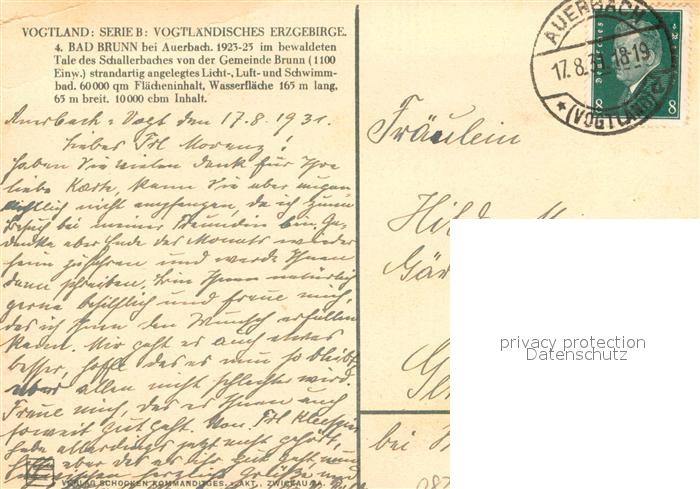 VOGTLAND: SERIE B: VOGTLÄNDISCHES ERZGEBIRGE.
4. BAD BRUNN bei Auerbach. 1923-25 im bewaldeten
Tale des Schallerbaches von der Gemeinde Brunn (1100
Einw.) strandartig angelegtes Licht-, Luft- und Schwimm-
bad. 60 000 qm Flächeninhalt, Wasserfläche 165 m lang,
65 m breit. 10 000 cbm Inhalt.
Auerbach i. Vogt den 17.8.1931.
Liebes Frl
haben Sie vielen Dank für Ihre
liebe Karte, kann Sie aber augen
blicklich nicht empfangen, da ich zum
Besuch bei meiner Freundin bin. Ge-
denke aber Ende des Monats wieder
heim zufahren und werde Ihnen
dann schreiben. Bin Ihnen natürlich
gerne behilflich und freue mich,
das ich Ihnen den Wunsch erfüllen
kann. Mir geht es auch etwas
besser, hoffe das es nun so bleibt
aber allen nicht schlechter wird.
Freue mich, das es Ihnen auch
soweit gut geht. Von Frl
habe allerdings jetzt nicht gehört,
aber das es ihr gut geht, und
herzliche Grüße und
VERLAG SCHOCKEN KOMMANDITGES. a. AKT., ZWICKAU SA.
AUERBACH
17.8.31.18-19
*(VOGTLAND) c
Deutsches
8 8
Fräulein
Gär
bei
privacy protection
Datenschutz